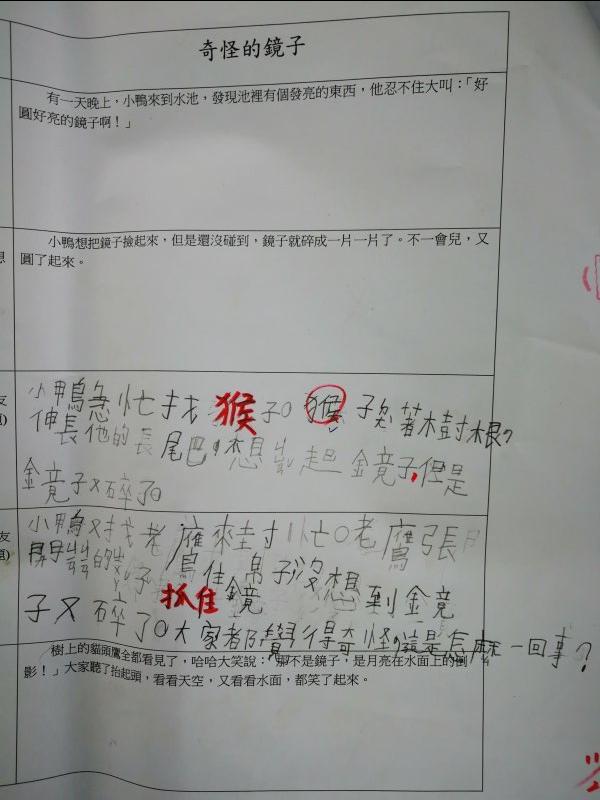 奇怪的鏡子
有一天晚上，小鴨來到水池，發現池裡有個發亮的東西，他忍不住大叫：「好
圓好亮的鏡子啊！」
小鴨想把鏡子撿起來，但是還沒碰到，鏡子就碎成一片一片了。不一會兒，又
圓了起來。
小鴨急忙找猴子。猴子
著木樹根，
伸長他的長尾巴，想
起鏡子，但是
鏡子又碎了。
小鴨又找老鷹來封忙。老鷹張
的
子
抓住鏡子沒想到鏡
子又碎了。大家都覺得奇怪，這是怎麻一回事？
樹上的貓頭鷹全都看見了，哈哈大笑說：「那不是鏡子，是月亮在水面上的倒
影！」大家聽了抬起頭，看看天空，又看看水面，都笑了起來。